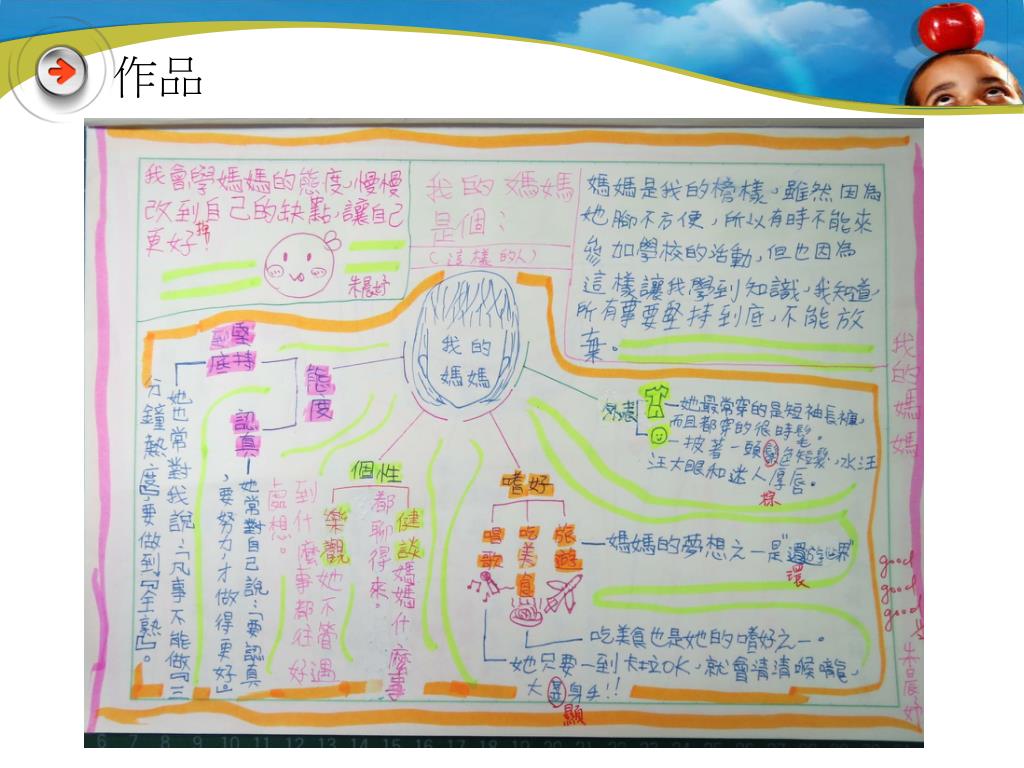 作品
我會學媽媽的態度,慢慢
改到自己的缺點,讓自己
更好!
朱晨妤
我的媽媽
是個:
(這樣的人)
媽媽是我的榜樣,雖然因為
她腳不方便,所以有時不能來
參加學校的活動,但也因為
這樣讓我學到知識,我知道,
所有事要堅持到底,不能放
棄。
我的
媽媽
態度
堅持
到底
她也常對我說:「凡事不能做『三
分鐘熱度』要做到『全熟』。
認真
她常對自己說:「要認真
,要努力,才做得更好」
個性
樂觀
她不管遇
到什麼事都往好
處想。
健談
媽媽什麼事
都聊得來。
嗜好
唱歌
吃美食
旅遊
媽媽的夢想之一是"遊世界"
環
吃美食也是她的嗜好之一。
她只要一到卡拉OK,就會清清喉嚨,
大身手!!
顯
外表
她最常穿的是短袖長褲,
而且都穿的很時髦。
披著一頭色短髮,水汪
汪大眼和迷人厚唇。
棕
我的媽媽
good
good
good
朱晨妤
6 7 8 9 10 11 12 13 14 15 16 17 18 19 20